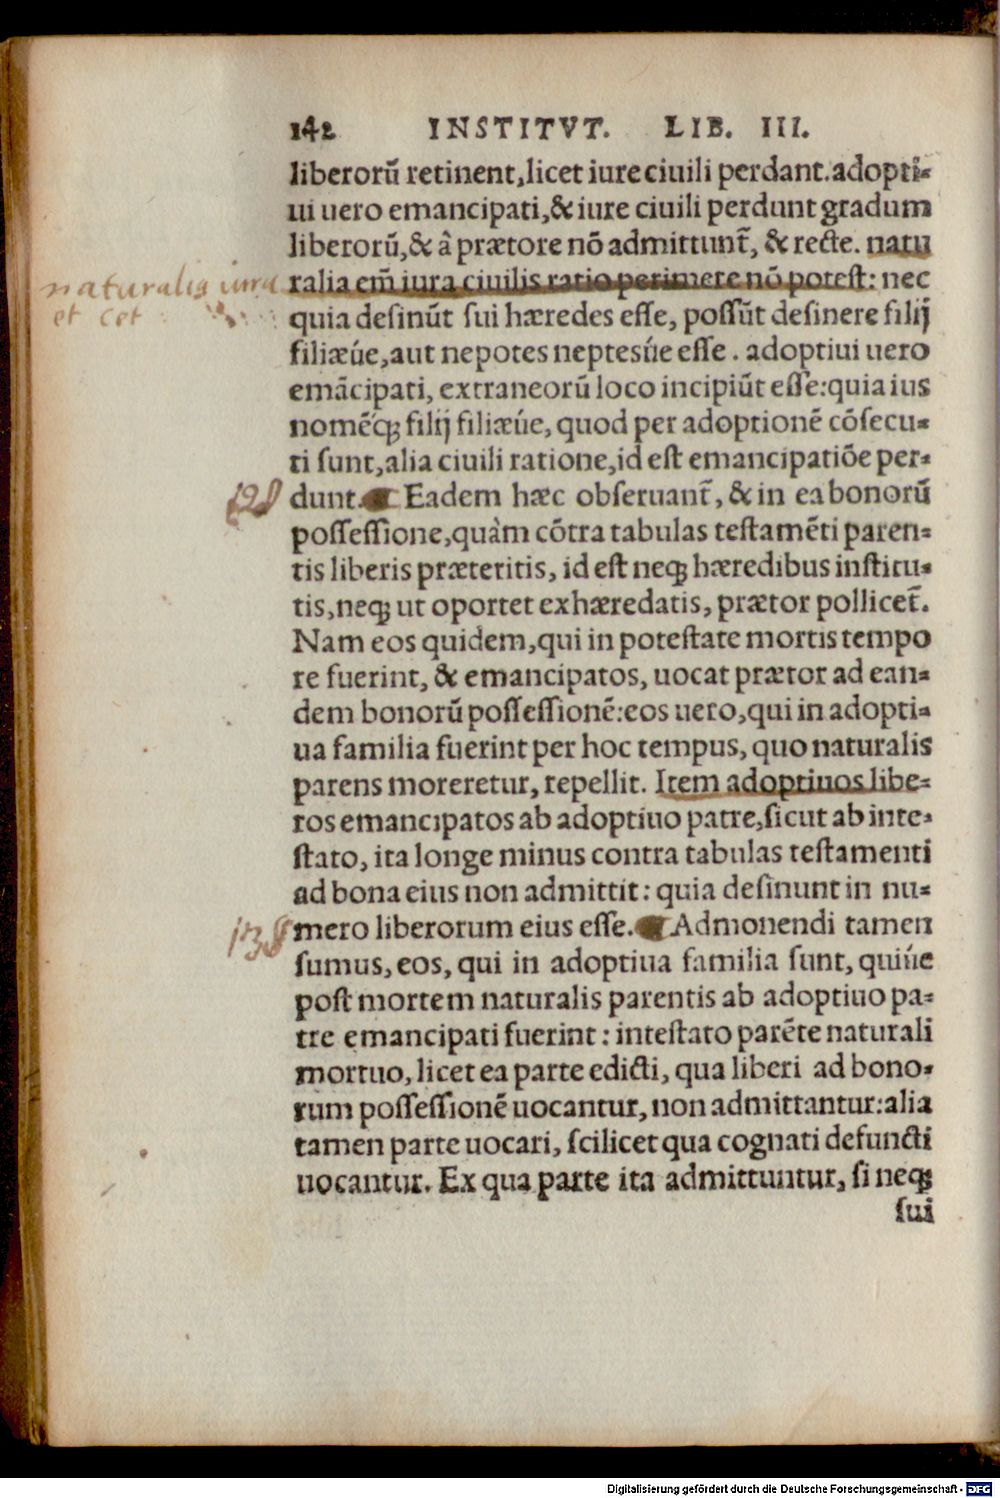 142 INSTITVT. LIB. III.
liberorũ retinent, licet iure ciuili perdant. adopti-
ui uero emancipati, & iure ciuili perdunt gradum
liberorũ, & â prætore nõ admittunt̃, & recte. natu
ralia em̃ iura ciuilis ratio perimere nõ potest: nec
naturalia iura
et cet
quia desinũt sui hæredes esse, possũt desinere filij
filiæúe, aut nepotes neptesúe esse. adoptiui uero
emãcipati, extraneorũ loco incipiũt esse: quia ius
nomẽq́ꝫ filij filiæúe, quod per adoptionẽ cõsecu-
ti sunt, alia ciuili ratione, id est emancipatiõe per-
dunt. Eadem hæc obseruant̃, & in ea bonorũ
possessione, quàm cõtra tabulas testamẽti paren-
tis liberis præteritis, id est neqꝫ hæredibus institu-
tis, neqꝫ ut oportet exhæredatis, prætor pollicet̃.
Nam eos quidem, qui in potestate mortis tempo
re fuerint, & emancipatos, uocat prætor ad ean-
dem bonorũ possessionẽ: eos uero, qui in adopti-
ua familia fuerint per hoc tempus, quo naturalis
parens moreretur, repellit. Item adoptiuos libe-
ros emancipatos ab adoptiuo patre, sicut ab inte-
stato, ita longe minus contra tabulas testamenti
ad bona eius non admittit: quia desinunt in nu-
mero liberorum eius esse. Admonendi tamen
sumus, eos, qui in adoptiua familia sunt, quiúe
post mortem naturalis parentis ab adoptiuo pa-
tre emancipati fuerint: intestato parẽte naturali
mortuo, licet ea parte edicti, qua liberi ad bono-
rum possessionẽ uocantur, non admittantur: alia
tamen parte uocari, scilicet qua cognati defuncti
uocantur. Ex qua parte ita admittuntur, si neqꝫ
sui
Digitalisierung gefördert durch die Deutsche Forschungsgemeinschaft - DFG